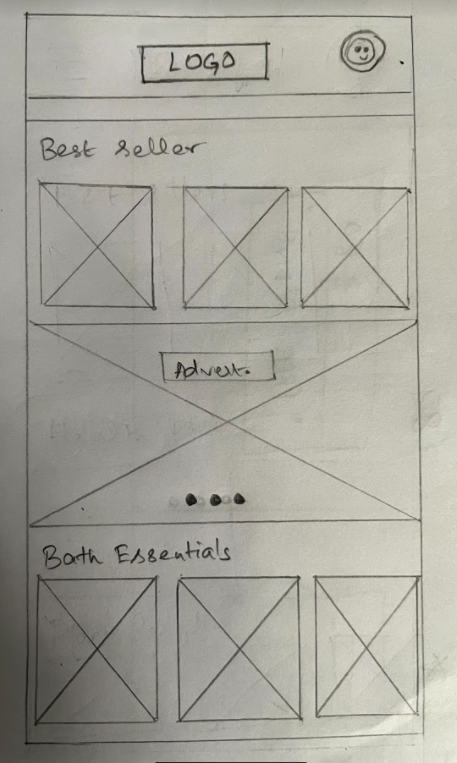 LOGO
Best seller
Advert.
Bath Essentials